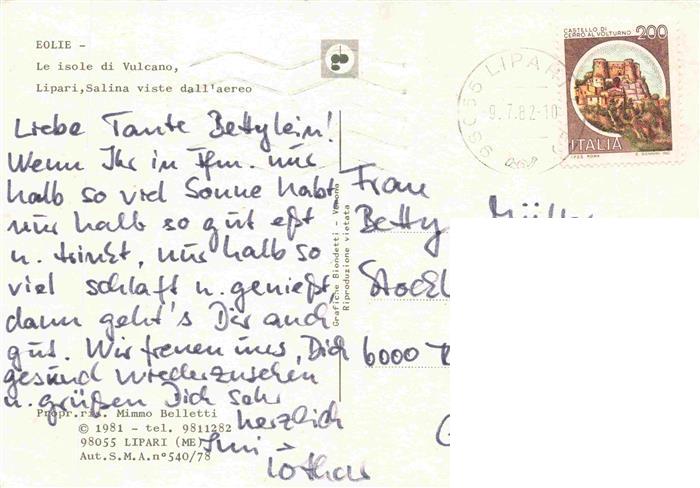 EOLIE -
Le isole di Vulcano,
Lipari,Salina viste dall'aereo
Liebe Tante Bettylein!
Wenn Ihr in Ffm. nur
halb so viel Sonne habt
nur halb so gut eßt
u. trinkt, nur halb so
viel schlaft u. genießt,
dann geht's Dir auch
gut. Wir freuen uns, Dich
gesund wiederzusehen
u. grüßen Dich sehr
herzlich
Lothar
Propr.ris. Mimmo Belletti
© 1981 - tel. 9811282
98055 LIPARI (ME)
Aut.S.M.A.n°540/78
Grafiche Biondetti - Verona
Riproduzione vietata
98055 LIPARI
9.7.82-10
CASTELLO DI
CERRO AL VOLTURNO
200
ITALIA
Frau
Betty
6000